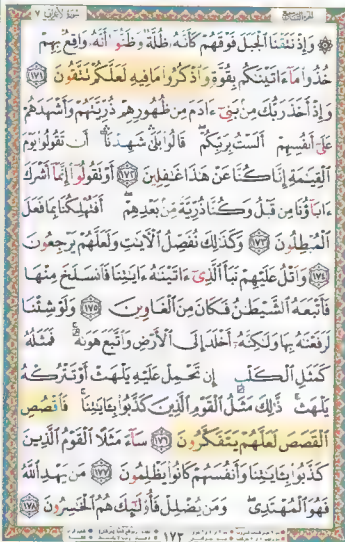 سورة الأعراف ٧
۞ وَإِذْ نَتَقْنَا ٱلْجَبَلَ فَوْقَهُمْ كَأَنَّهُۥ ظُلَّةٌ وَظَنُّوٓا۟ أَنَّهُۥ وَاقِعٌۢ بِهِمْ
خُذُوا۟ مَآ ءَاتَيْنَٰكُم بِقُوَّةٍ وَٱذْكُرُوا۟ مَا فِيهِ لَعَلَّكُمْ تَتَّقُونَ ﴿١٧١﴾
وَإِذْ أَخَذَ رَبُّكَ مِنۢ بَنِىٓ ءَادَمَ مِن ظُهُورِهِمْ ذُرِّيَّتَهُمْ وَأَشْهَدَهُمْ
عَلَىٰٓ أَنفُسِهِمْ أَلَسْتُ بِرَبِّكُمْ ۖ قَالُوا۟ بَلَىٰ ۛ شَهِدْنَآ ۛ أَن تَقُولُوا۟ يَوْمَ
ٱلْقِيَٰمَةِ إِنَّا كُنَّا عَنْ هَٰذَا غَٰفِلِينَ ﴿١٧٢﴾ أَوْ تَقُولُوٓا۟ إِنَّمَآ أَشْرَكَ
ءَابَآؤُنَا مِن قَبْلُ وَكُنَّا ذُرِّيَّةً مِّنۢ بَعْدِهِمْ ۖ أَفَتُهْلِكُنَا بِمَا فَعَلَ
ٱلْمُبْطِلُونَ ﴿١٧٣﴾ وَكَذَٰلِكَ نُفَصِّلُ ٱلْءَايَٰتِ وَلَعَلَّهُمْ يَرْجِعُونَ
﴿١٧٤﴾ وَٱتْلُ عَلَيْهِمْ نَبَأَ ٱلَّذِىٓ ءَاتَيْنَٰهُ ءَايَٰتِنَا فَٱنسَلَخَ مِنْهَا
فَأَتْبَعَهُ ٱلشَّيْطَٰنُ فَكَانَ مِنَ ٱلْغَاوِينَ ﴿١٧٥﴾ وَلَوْ شِئْنَا
لَرَفَعْنَٰهُ بِهَا وَلَٰكِنَّهُۥٓ أَخْلَدَ إِلَى ٱلْأَرْضِ وَٱتَّبَعَ هَوَىٰهُ ۚ فَمَثَلُهُۥ
كَمَثَلِ ٱلْكَلْبِ إِن تَحْمِلْ عَلَيْهِ يَلْهَثْ أَوْ تَتْرُكْهُ
يَلْهَث ۚ ذَّٰلِكَ مَثَلُ ٱلْقَوْمِ ٱلَّذِينَ كَذَّبُوا۟ بِـَٔايَٰتِنَا ۚ فَٱقْصُصِ
ٱلْقَصَصَ لَعَلَّهُمْ يَتَفَكَّرُونَ ﴿١٧٦﴾ سَآءَ مَثَلًا ٱلْقَوْمُ ٱلَّذِينَ
كَذَّبُوا۟ بِـَٔايَٰتِنَا وَأَنفُسَهُمْ كَانُوا۟ يَظْلِمُونَ ﴿١٧٧﴾ مَن يَهْدِ ٱللَّهُ
فَهُوَ ٱلْمُهْتَدِى ۖ وَمَن يُضْلِلْ فَأُو۟لَٰٓئِكَ هُمُ ٱلْخَٰسِرُونَ ﴿١٧٨﴾
١٧٣